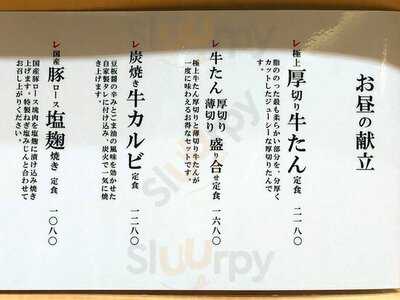 お昼の献立
レ極上 厚切り牛たん 定食 二一八〇
脂ののった最も柔らかい部分を、分厚く
カットしたジューシーな厚切りたんで
す。
レ牛たん 厚切り 薄切り 盛り合せ 定食 一六八〇
極上牛たん厚切りと薄切り牛たんが
一度に味わえるお得なセットです。
レ炭焼き牛カルビ 定食 一二八〇
豆板醤の辛みとごま油の風味を効かせた
自家製タレに付け込み、炭火で一気に焼
き上げます。
レ国産 豚ロース 塩麹焼き 定食 一〇八〇
国産豚ロース塊肉を塩麹に漬け込み焼き
上げます。特製ねぎ塩みじんと合わせて
お召し上がりください。
Sluurpy
Sluurpy